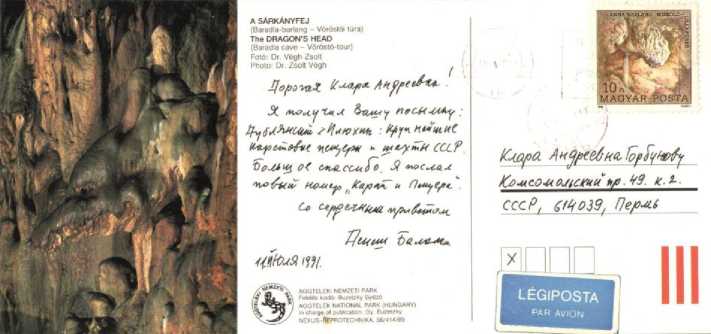 A SÁRKÁNYFEJ
(Baradla-barlang – Vöröstói túra)
The DRAGON'S HEAD
(Baradla cave – Vöröstó-tour)
Fotó: Dr. Végh Zsolt
Photo: Dr. Zsolt Végh
Дорогая Клара Андреевна!
Я получил Вашу посылку:
Дублянский - Илюхин: Крупнейшие
карстовые пещеры и шахты СССР.
Большое спасибо. Я послал
новый номер „Карст и Пещера".
Со сердечным приветом
Денеш Балаж
1991.
10
MAGYAR POSTA
Клара Андреевна Горбунову
Комсомольский пр. 49. к. 2.
СССР, 614039, Пермь
X
LÉGIPOSTA
PAR AVION
AGGTELEKI NEMZETI PARK
AGGTELEKI NEMZETI PARK
Felelős kiadó: Buzetzky Győző
AGGTELEK NATIONAL PARK (HUNGARY)
In charge of publication: Gy. Buzetzky